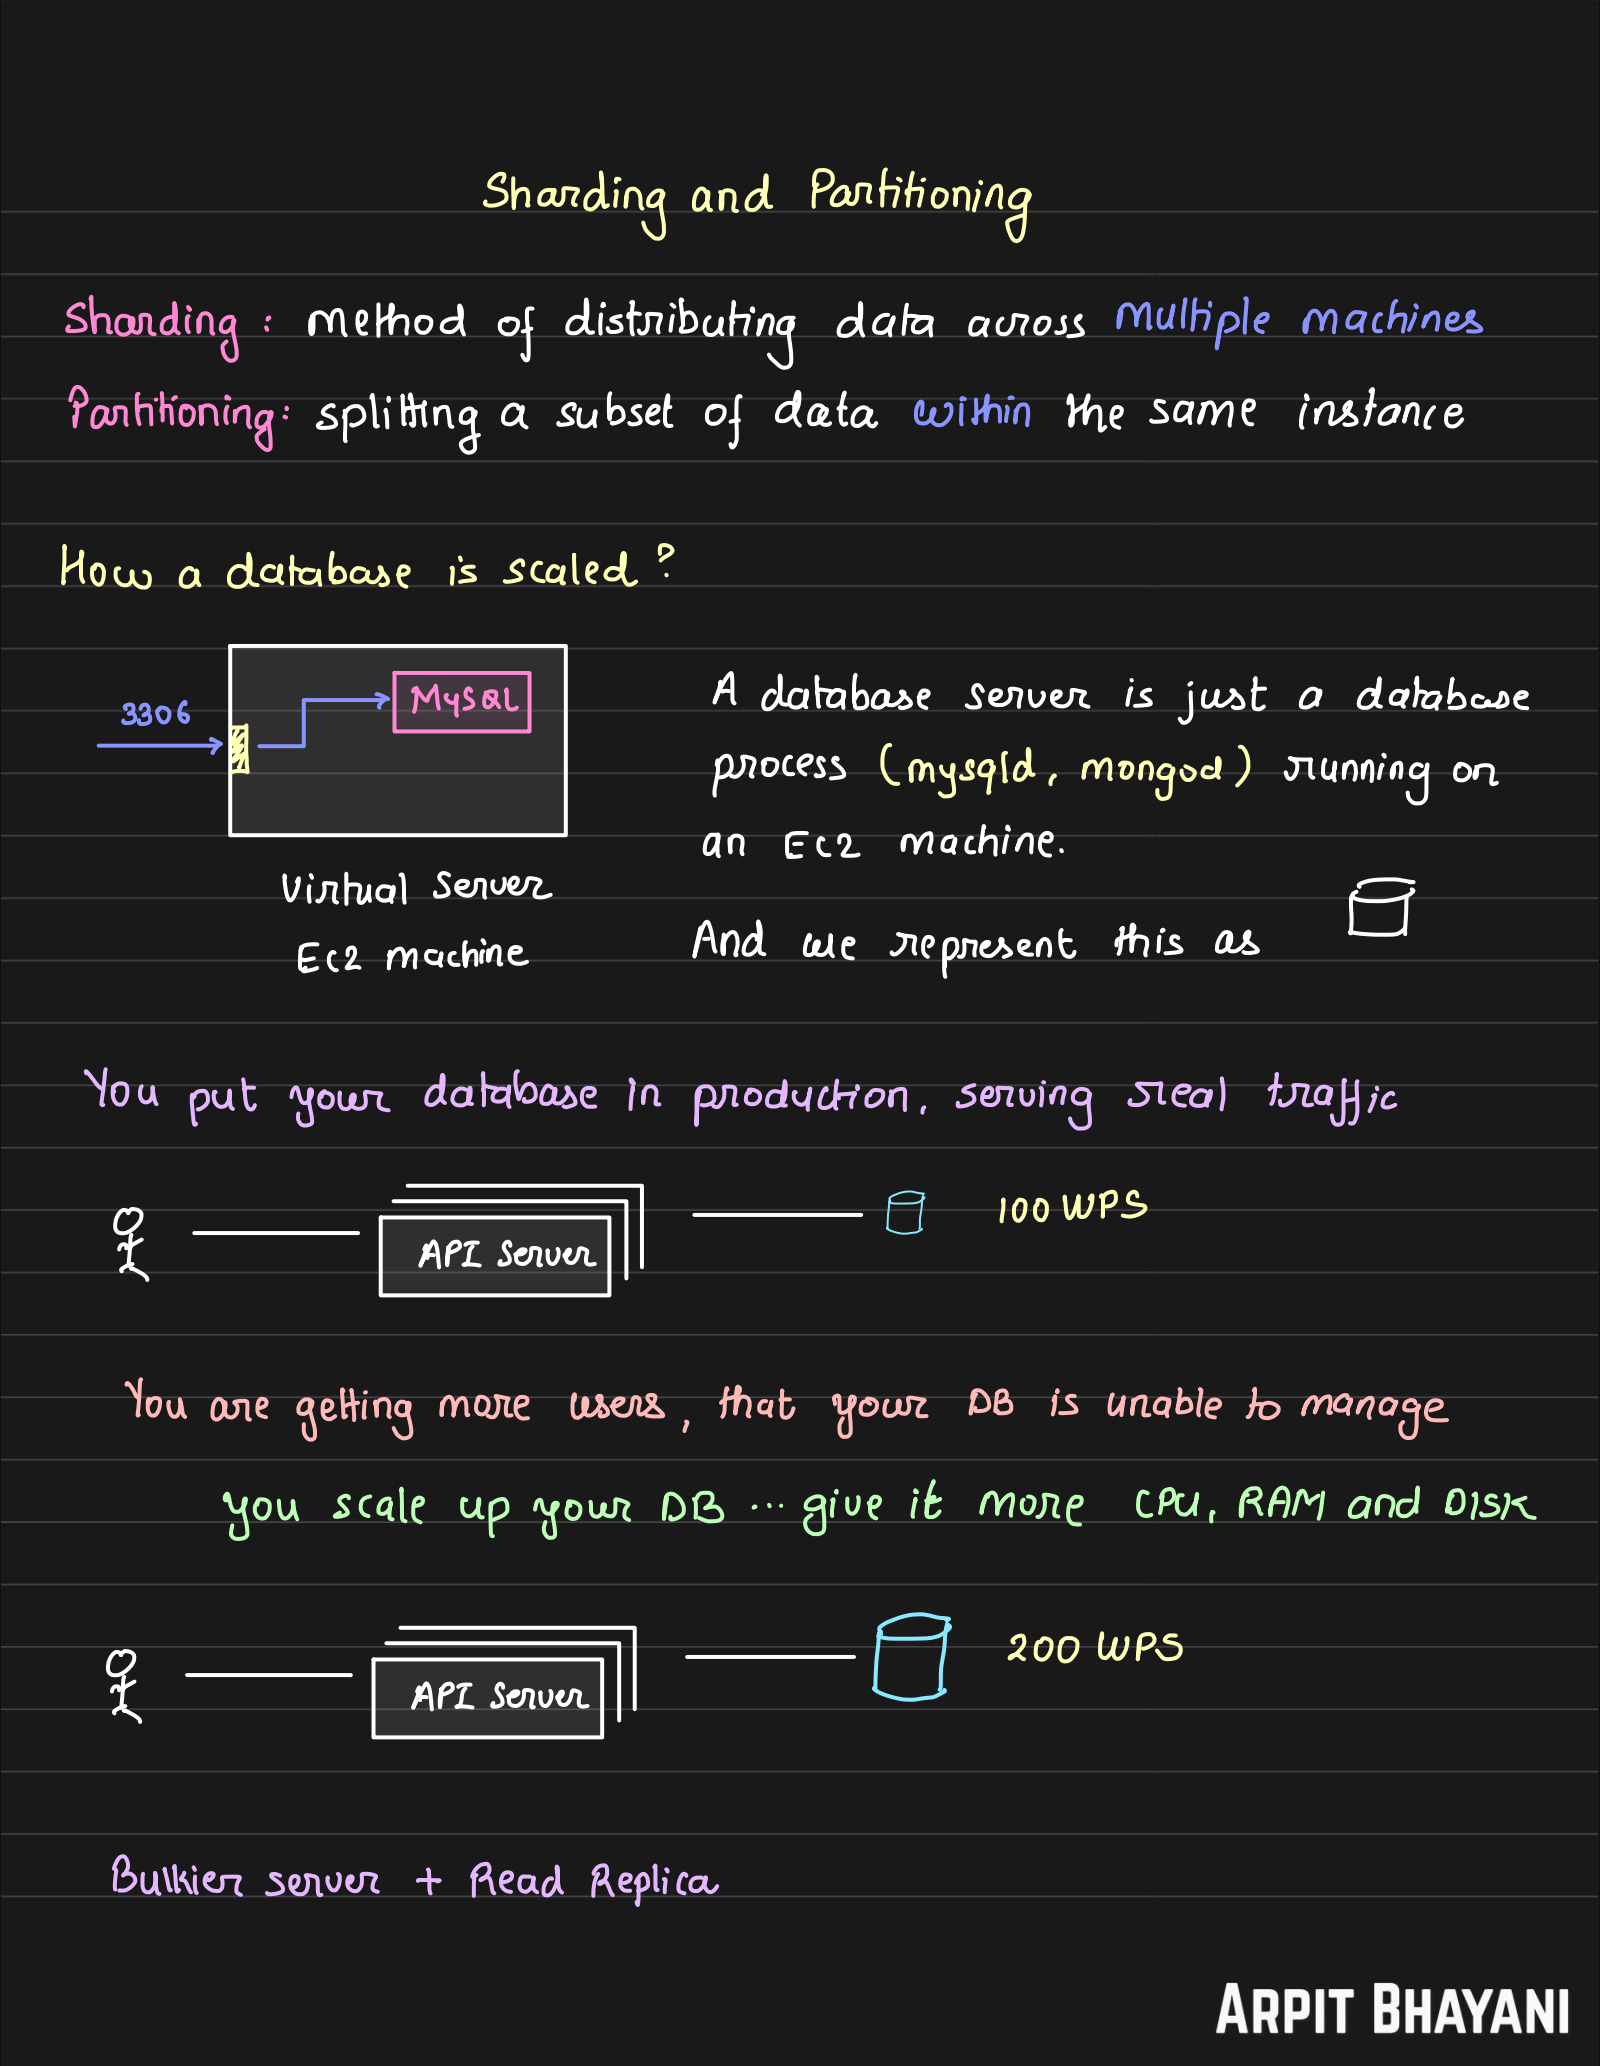 Sharding and Partitioning
Sharding: method of distributing data across multiple machines
Partitioning: splitting a subset of data within the same instance
How a database is scaled?
3306
MySQL
Virtual Server
EC2 machine
A database server is just a database
process (mysqld, mongod) running on
an EC2 machine.
And we represent this as
You put your database in production, serving real traffic
API Server
100 WPS
You are getting more users, that your DB is unable to manage
you scale up your DB ... give it more CPU, RAM and DISK
API Server
200 WPS
Bulkier server + Read Replica
ARPIT BHAYANI